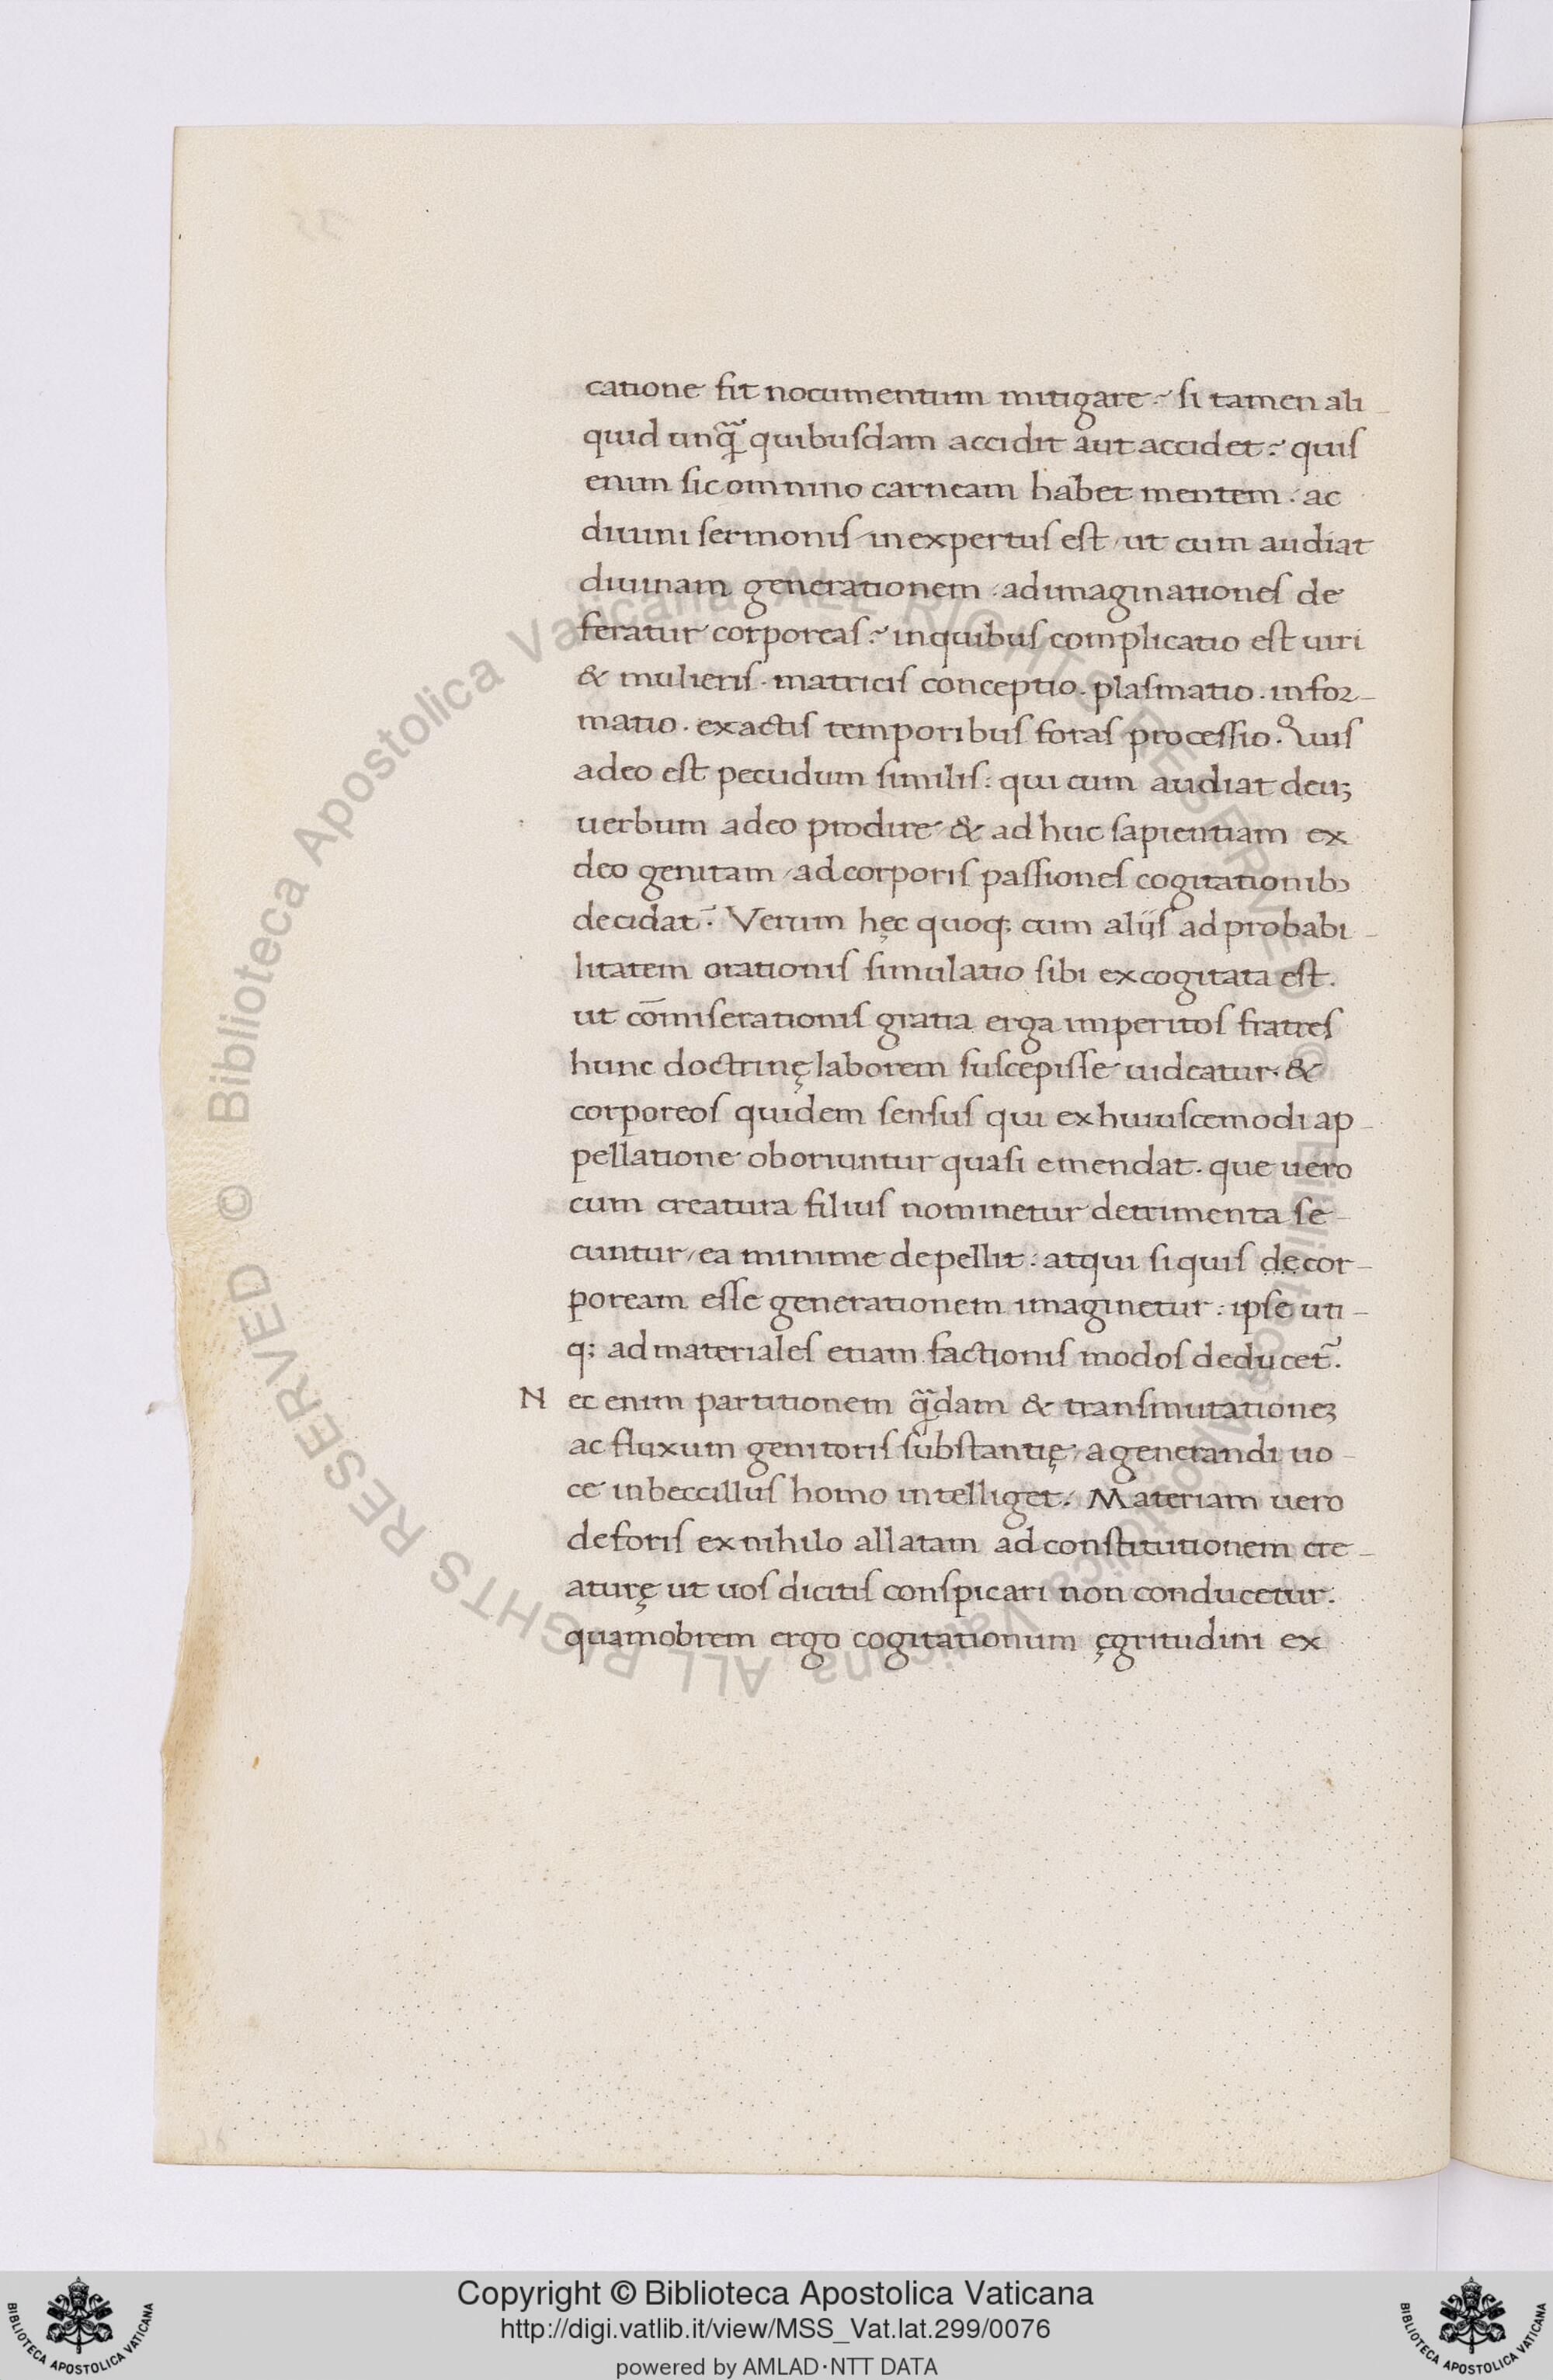 catione fit nocumentum mitigare? si tamen ali-
quid unq̃ quibusdam accidit aut accidet? quis
enim sic omnino carneam habet mentem: ac
diuini sermonis inexpertus est, ut cum audiat
diuinam generationem: ad imaginationes de
feratur corporeas? in quibus complicatio est uiri
& mulieris. matricis conceptio. plasmatio. infor-
matio. exactis temporibus foras processio. Quis
adeo est pecudum similis: qui cum audiat deuʒ
uerbum a deo prodire & ad huc sapientiam ex
deo genitam, ad corporis passiones cogitationibꝫ
decidat? Verum hęc quoqꝫ cum alijs ad probabi-
litatem orationis simulatio sibi excogitata est.
ut cōmiserationis gratia erga imperitos fratres
hunc doctrinę laborem suscepisse uideatur. &
corporeos quidem sensus qui ex huiuscemodi ap-
pellatione oboriuntur quasi emendat. que uero
cum creatura filius nominetur detrimenta se-
cuntur, ea minime depellit: atqui si quis de cor-
poream esse generationem imaginetur: ipse uti-
qꝫ ad materiales etiam factionis modos deducet̃.
Nec enim partitionem q̃dam & transmutationeʒ
ac fluxum genitoris substantię, a generandi uo-
ce inbeccillus homo intelliget. Materiam uero
deforis ex nihilo allatam ad constitutionem cre-
aturę ut uos dicitis conspicari non conducetur.
quamobrem ergo cogitationum ęgritudini ex
Biblioteca Apostolica Vaticana ALL RIGHTS RESERVED ©
Copyright © Biblioteca Apostolica Vaticana
http://digi.vatlib.it/view/MSS_Vat.lat.299/0076
powered by AMLAD·NTT DATA
BIBLIOTECA APOSTOLICA VATICANA
BIBLIOTECA APOSTOLICA VATICANA